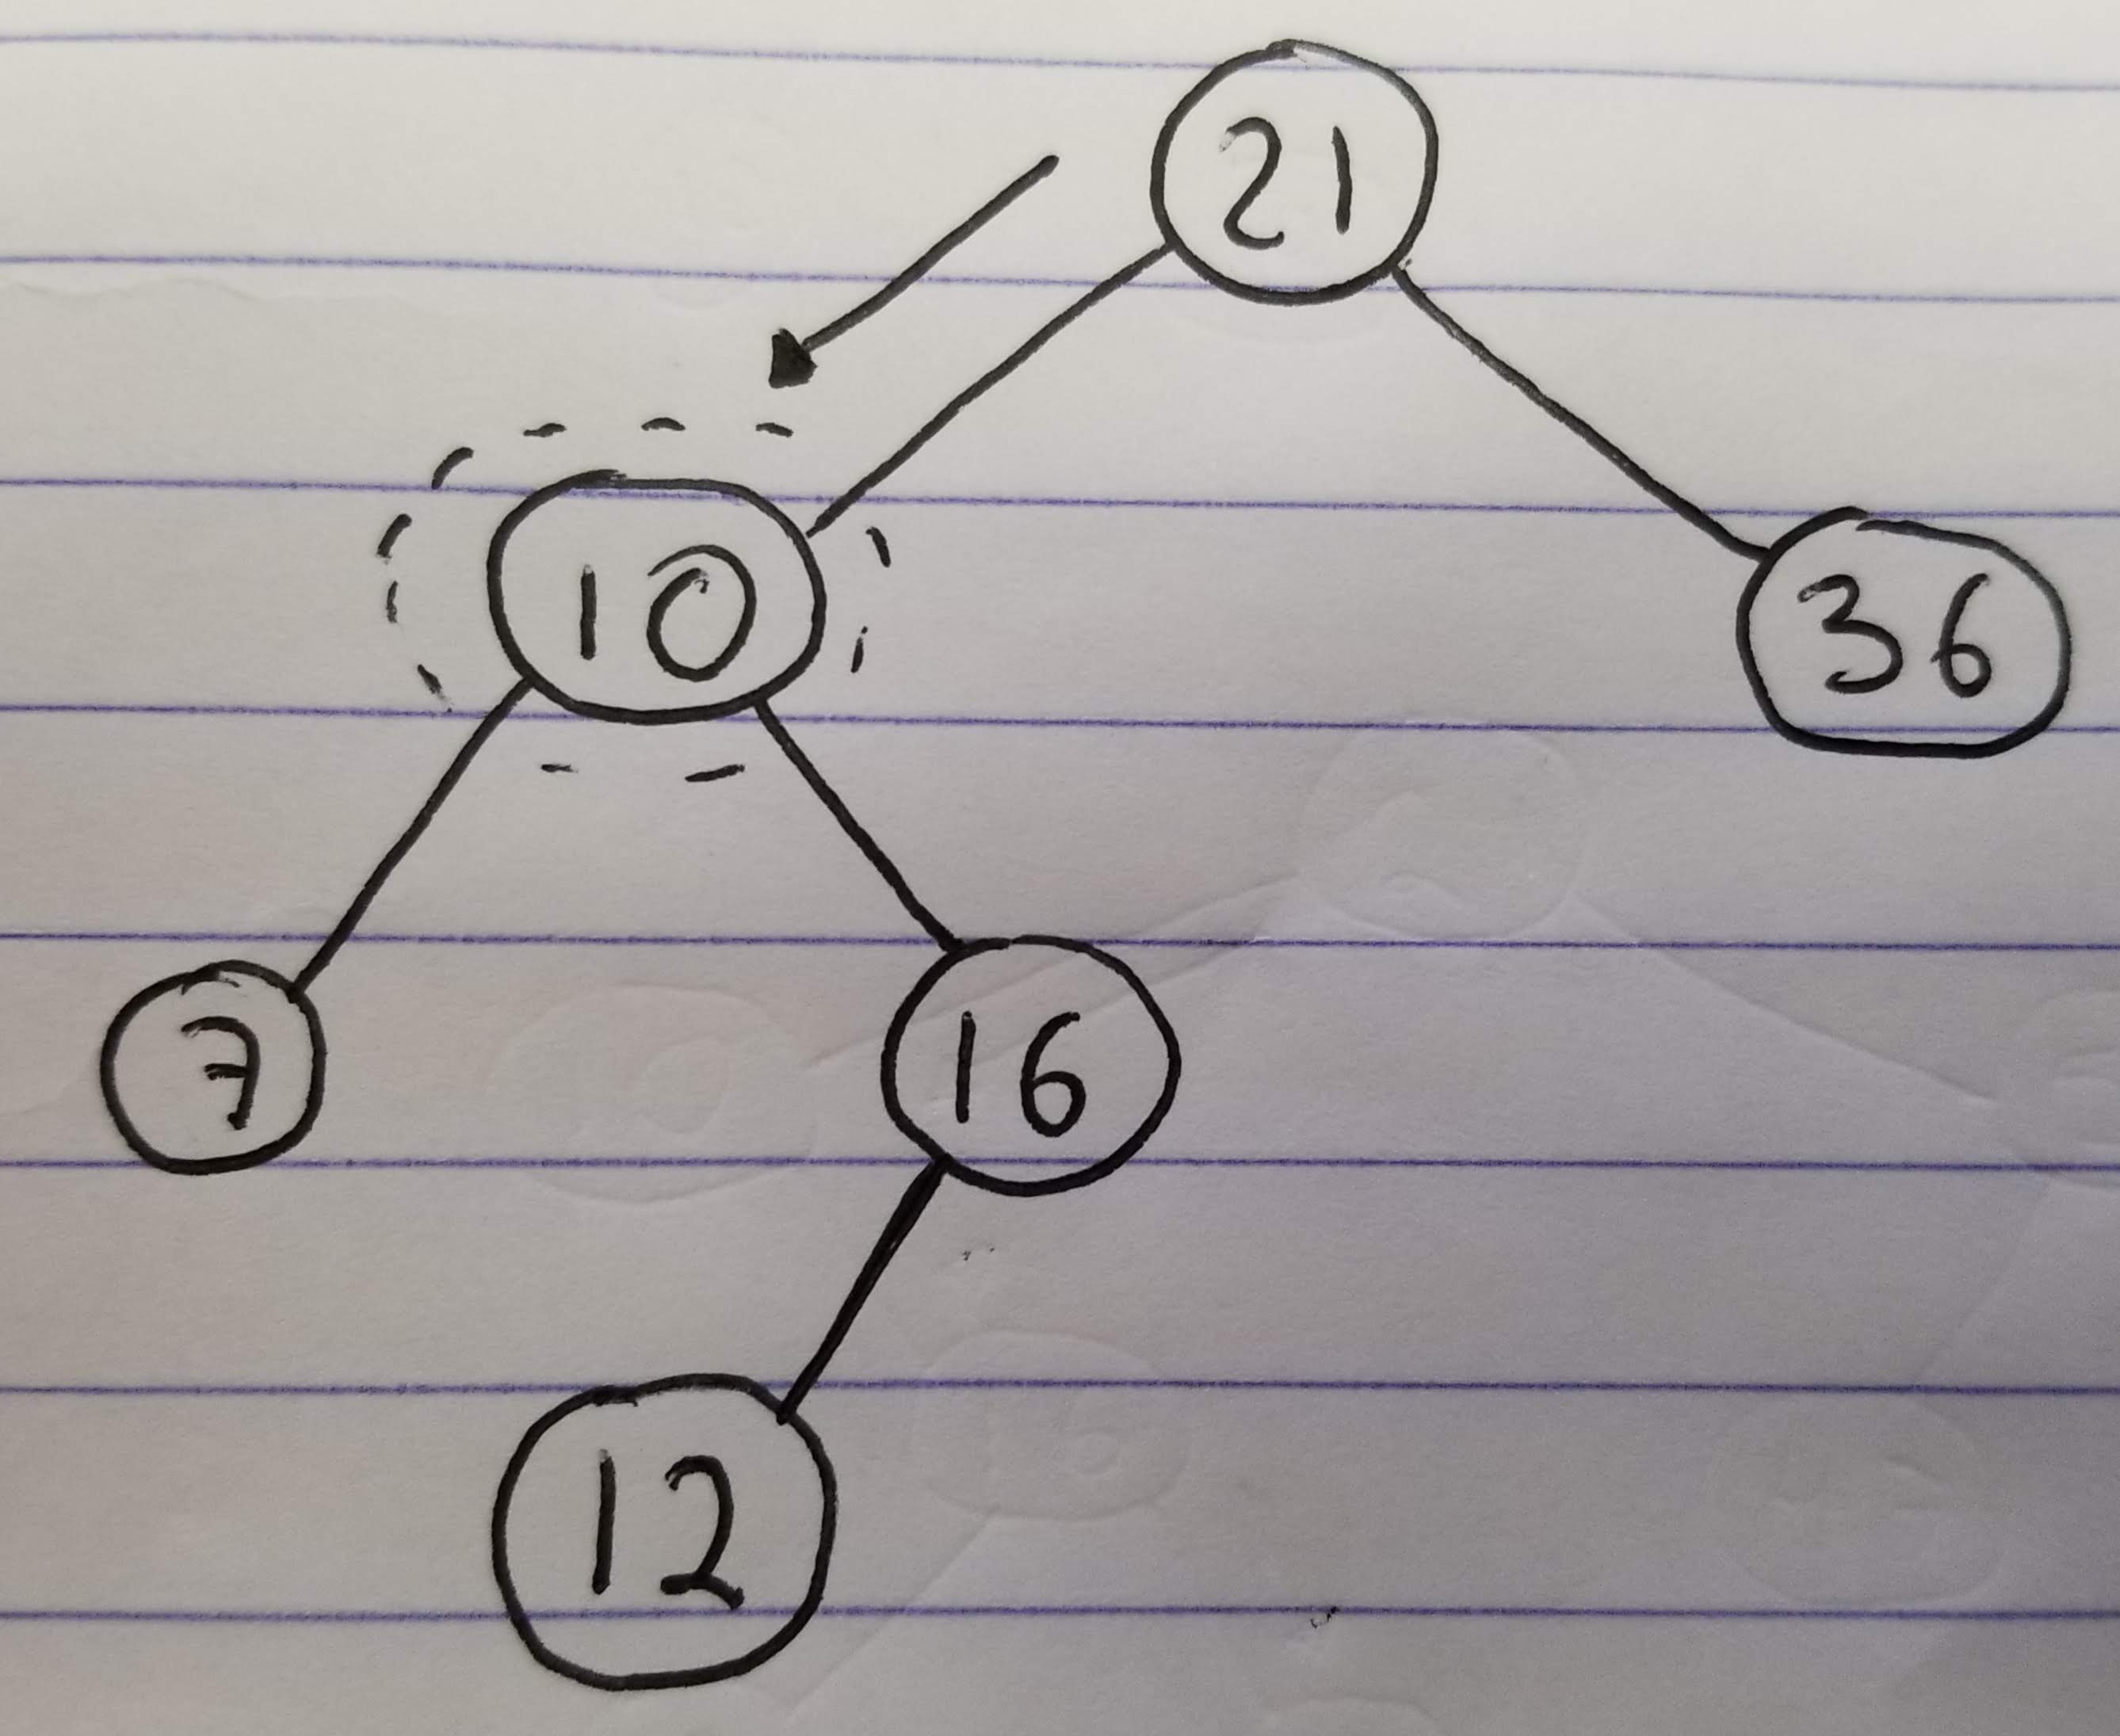 21
10 36
7 16
12